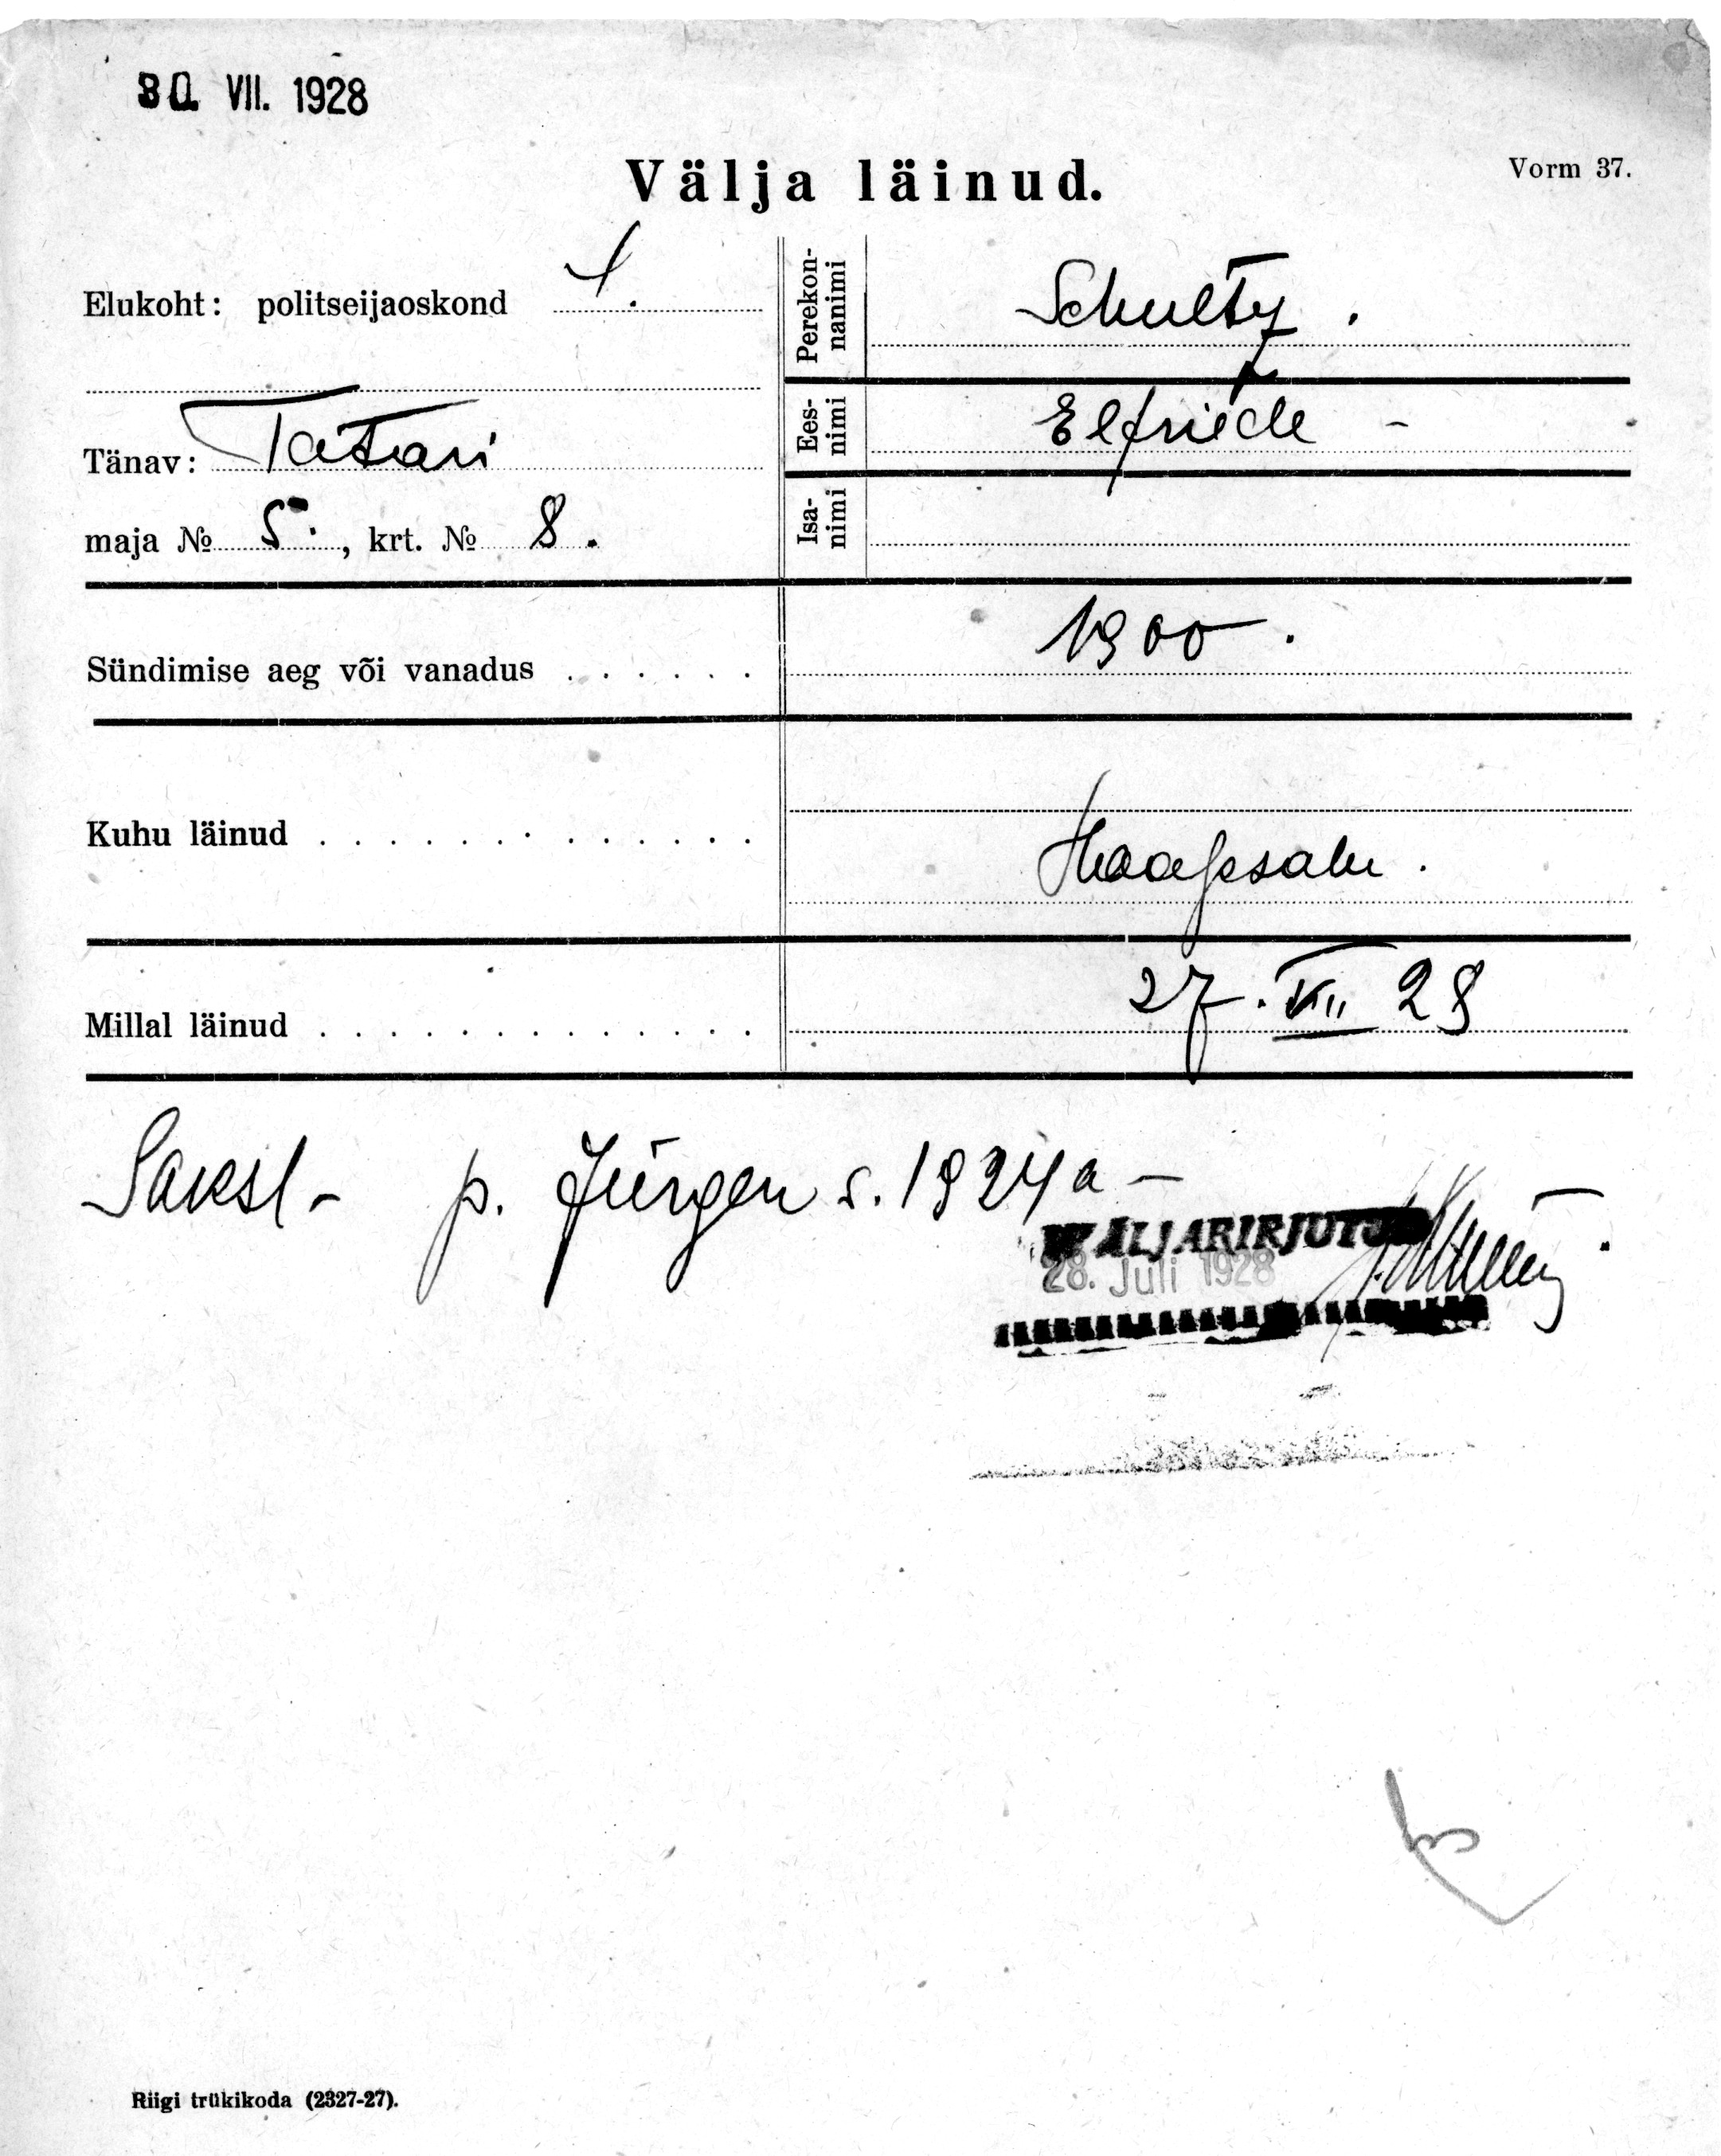 30. VII. 1928
Vorm 37.
Välja läinud.
Elukoht: politseijaoskond
Tänav: Tatari
maja № 5., krt. № 8.
Perekonnanimi Schultz.
Eesnimi Elfriede -
Isanimi
Sündimise aeg või vanadus . . . . . . 1900.
Kuhu läinud . . . . . . . . . . . . . Haapsalu.
Millal läinud . . . . . . . . . . . . . 27. VII 28
Saksl - p. Jürgen s. 1924 a -
WÄLJAKIRJUTUD
28. Juli 1928
Riigi trükikoda (2327-27).